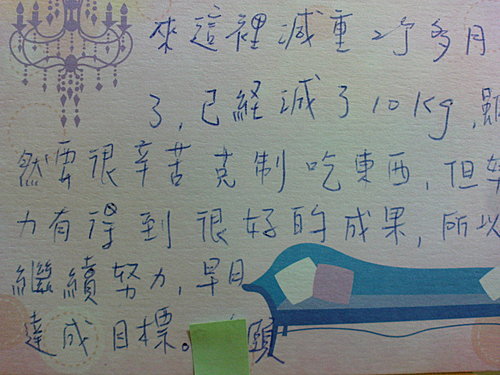 來這裡減重2个多月
了,已経減了10kg,雖
然要很辛苦克制吃東西,但努
力有得到很好的成果,所以
繼續努力,早日
達成目標。 頤